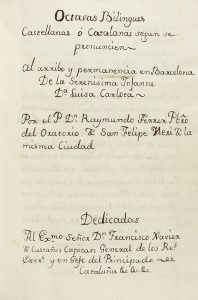 Octavas Bilingues
Castellanas ó Catalanas segun se
pronuncien
Al arribo y permanencia en Barcelona
De la Serenísima Infanta
Dª Luisa Carlota
Por el P. Dn. Raymundo Ferrer Pbro
del Oratorio de San Felipe Neri de la
misma Ciudad
Dedicadas
Al Exmo Señor Dn Francisco Xavier
de Castaños Capitan General de los Rs.
Exer.s y en Gefe del Principado de
Cataluña &c. &c. &c.